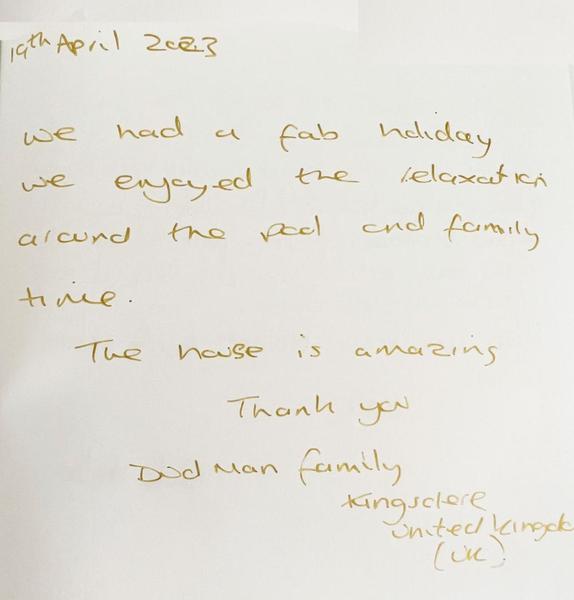 19th April 2023
we had a fab holiday
we enjoyed the relaxation
around the pool and family
time.
The house is amazing
Thank you
Dudman family
Kingsclere
United Kingdo
(UK)